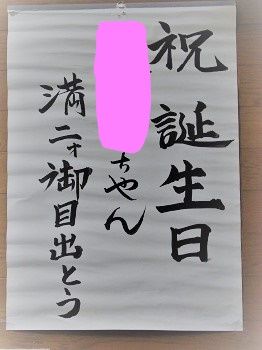 祝誕生日
ちやん
満二才御目出とう